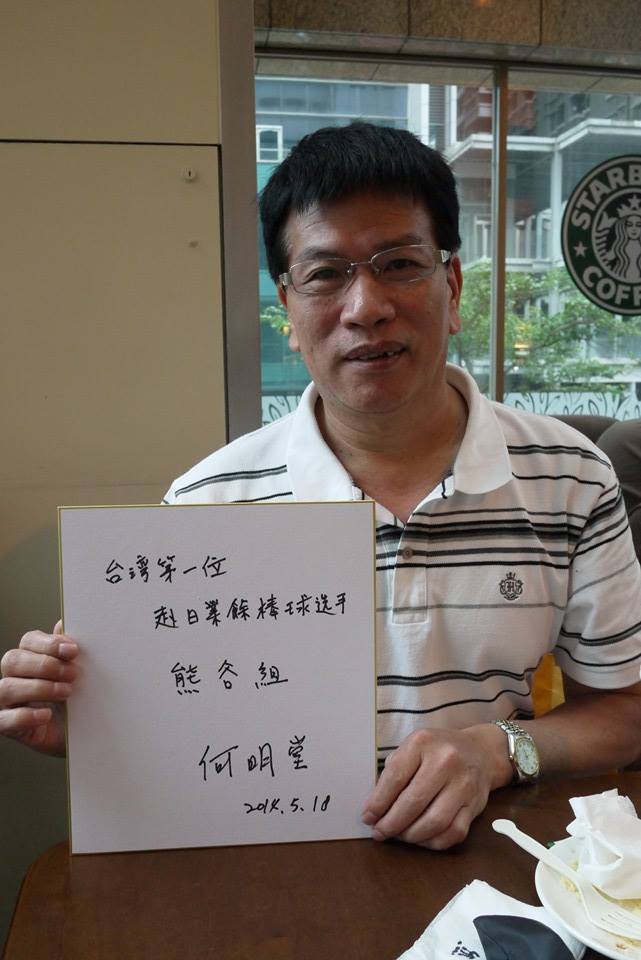 台湾第一位
赴日業餘棒球选手
熊谷組
何明堂
2014.5.18
STARBU
COFF